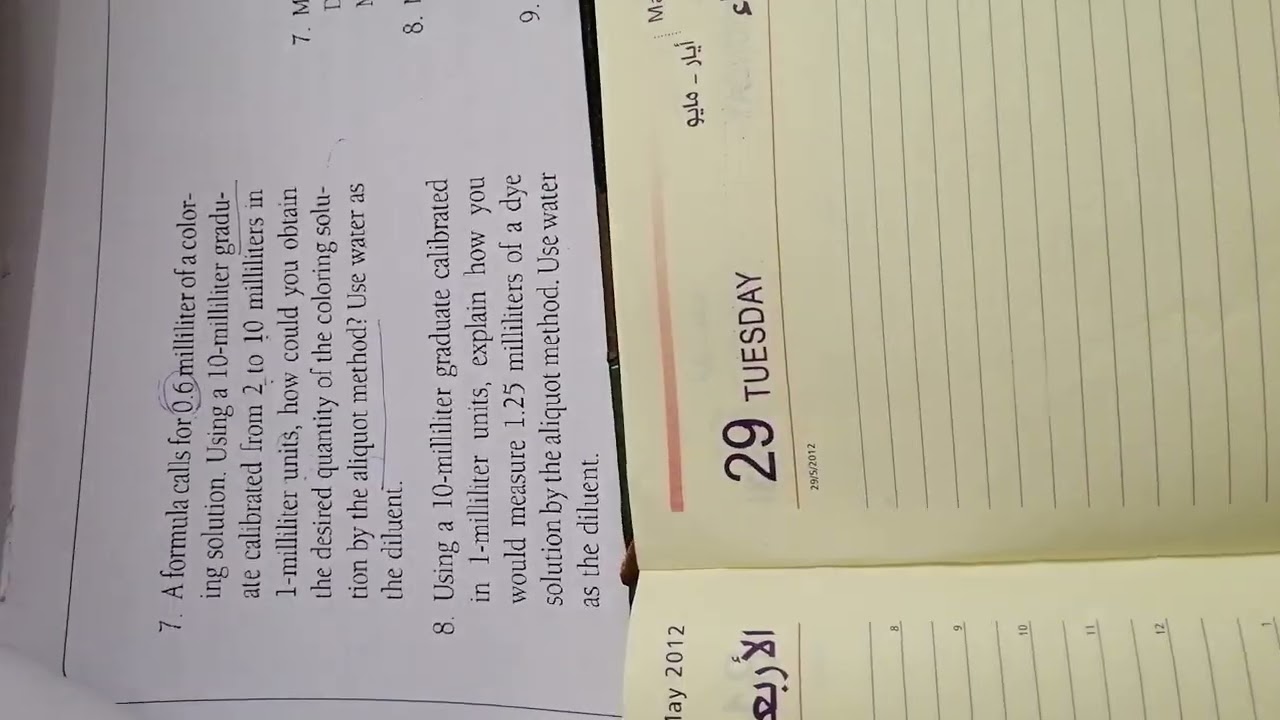 7. A formula calls for 0.6 milliliter of a color-
ing solution. Using a 10-milliliter gradu-
ate calibrated from 2 to 10 milliliters in
1-milliliter units, how could you obtain
the desired quantity of the coloring solu-
tion by the aliquot method? Use water as
the diluent.
8. Using a 10-milliliter graduate calibrated
in 1-milliliter units, explain how you
would measure 1.25 milliliters of a dye
solution by the aliquot method. Use water
as the diluent.
7. M
8.
9.
أيار - مايو
29 TUESDAY
29/5/2012
2012
8
9
10
11
12
1